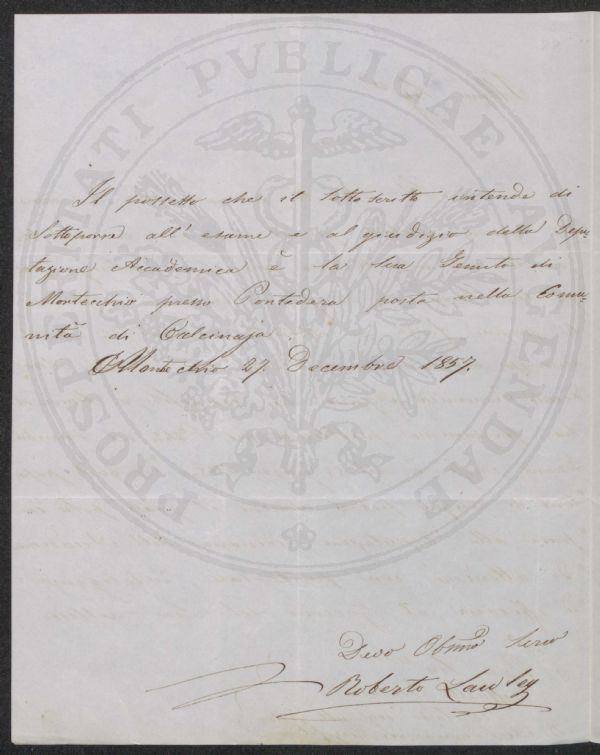 PROSPERITATI PVBLICAE AVGENDAE
Il possesso che il sottoscritto intende di
sottoporre all' esame e al giudizio della Depu-
tazione Accademica è la sua Tenuta di
Montecchio presso Pontedera posta nella Comu-
nità di Calcinaja.
Montecchio 27. Decembre 1857.
Devo Obmo Servo
Roberto Lawley